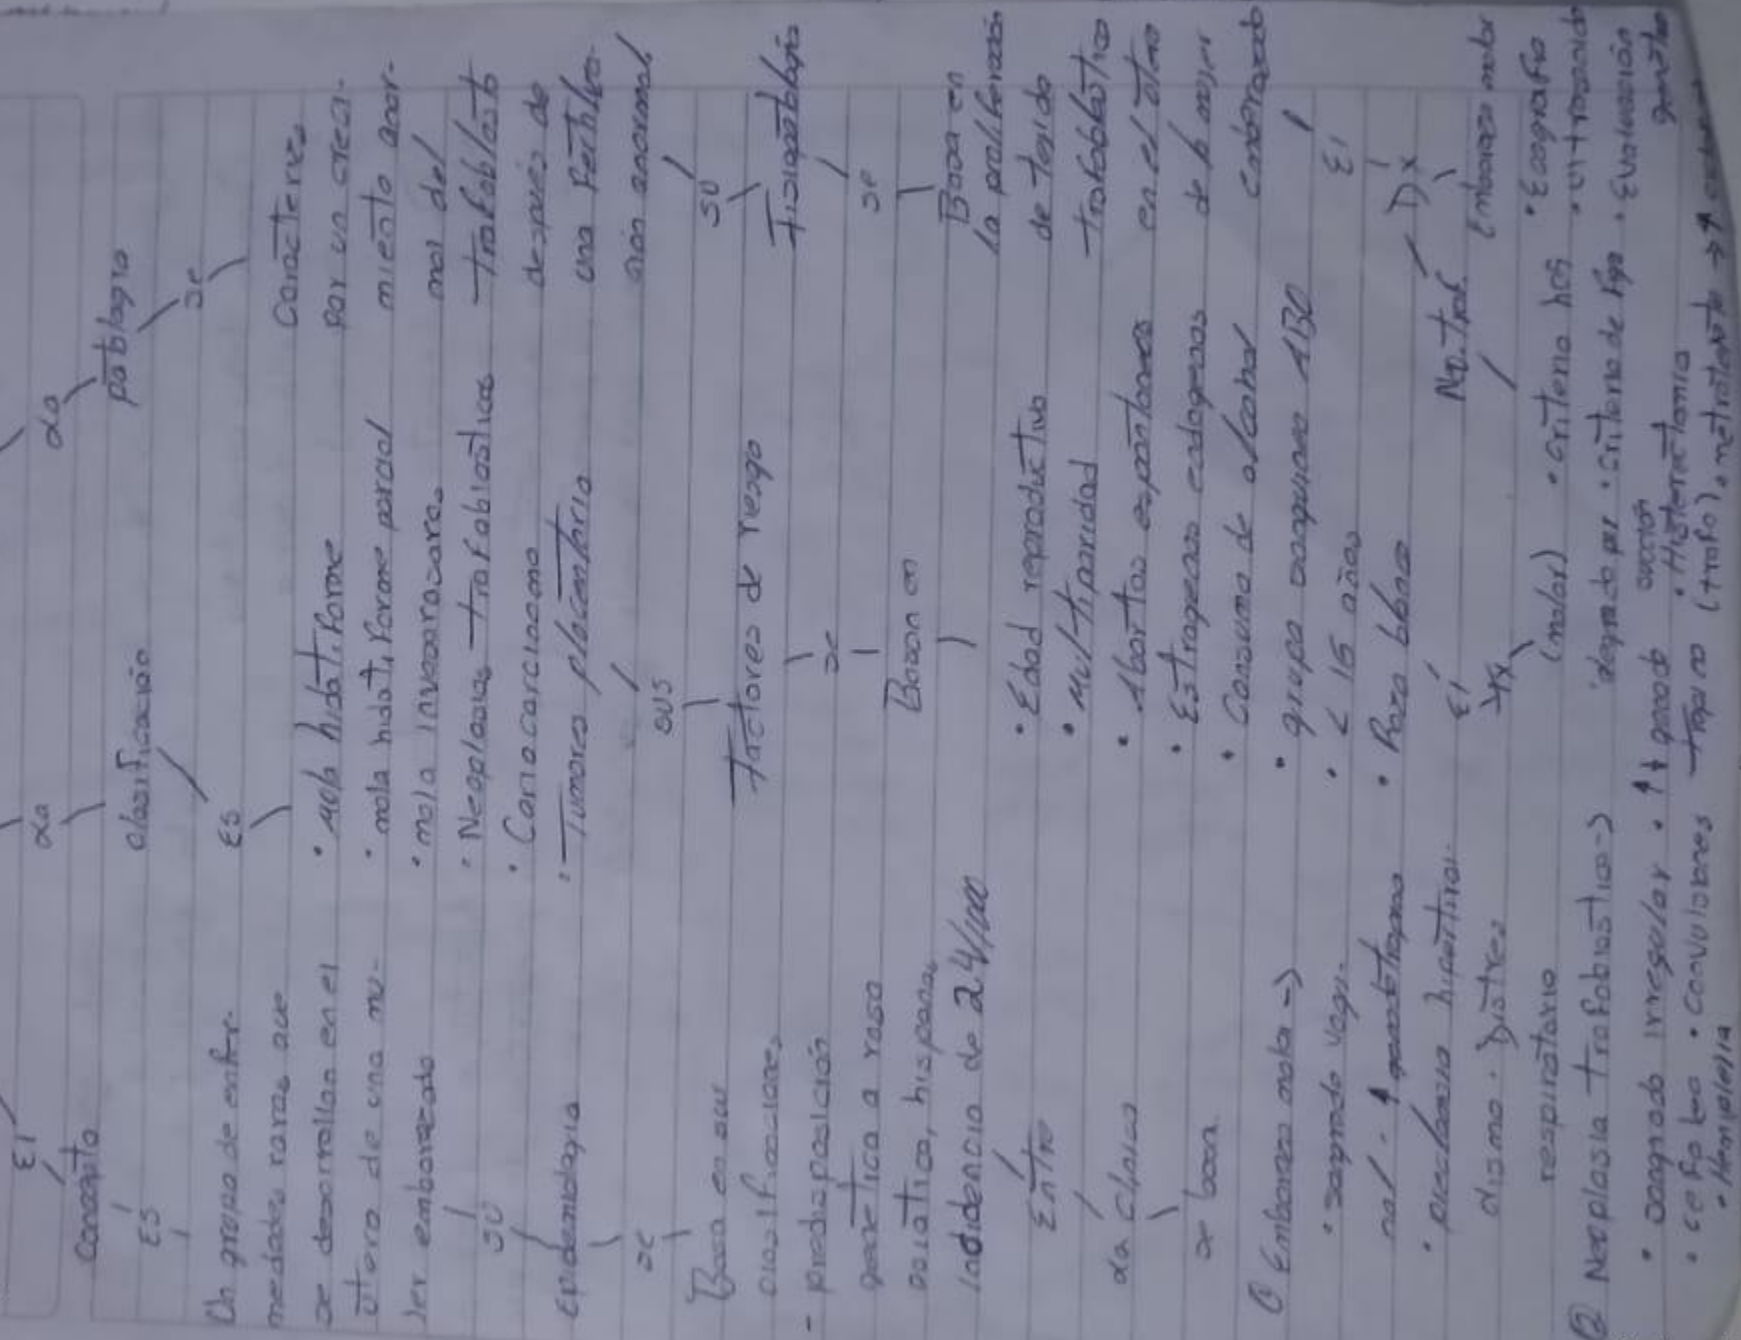 El
Concepto
ES
Un grupo de enfer-
medades raras que
se desarrollan en el
útero de una mu-
jer embarazada
SU
Epidemiología
se
Basa en sus
clasificaciones
- predisposición
genética a raza
asiática, hispanas
Incidencia de 24/1000
Entre
La Clínica
se basa
① Embarazo molar →
• sangrado vagi-
nal • ↑
• preeclampsia hipertiroi-
dismo • Distres
respiratorio
② Neoplasia trofoblastica →
• sangrado irregular • ↑
• cefalea • convulsiones
• Hemiplejia
La
clasificación
ES
• Mola hidatiforme
• mola hidatiforme parcial
• mola invasora
• Neoplasias trofoblasticas
• Coriocarcinoma
• Tumores placentario
SUS
factores de riesgo
se
Basan en
• Edad reproductiva
• Multiparidad
• Abortos espontaneos
• Estrogenos endogenos
• Consumo de alcohol
• grupo sanguineo ABO
• < 15 años
• Raza blanca
El
Tx
(molar)
succión
• Histerectomía
(trofo), metrotexato →
La
patología
se
Caracteriza
por un creci-
miento anor-
mal del
trofoblasto
después de
una fertiliza-
ción anormal
SU
Fisiopatología
se
Basa en
la proliferación
de tejido
trofoblástico
en el útero
de la mujer
embarazada
El
Dx
Embarazo molar
• Ecografía
• Criterio hcg
• criterio de Figo • Evaluación
genética